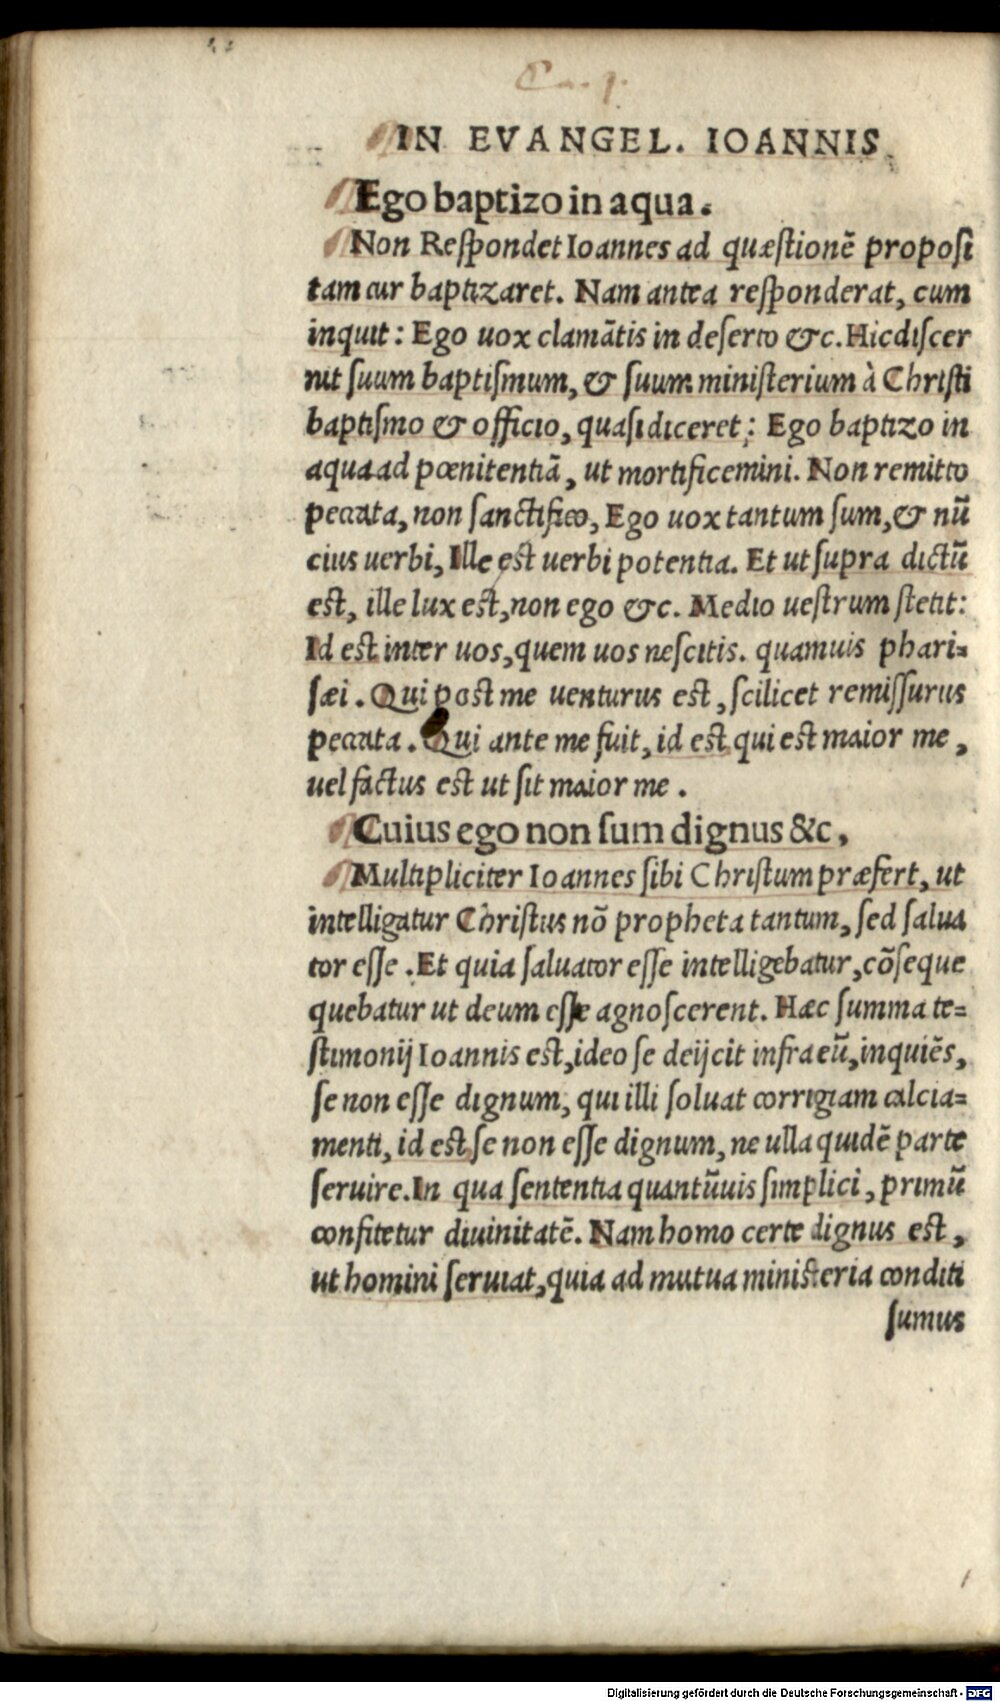 Ca. 1.
IN EVANGEL. IOANNIS
Ego baptizo in aqua.
Non Reſpondet Ioannes ad quæſtionē propoſi
tam cur baptizaret. Nam antea reſponderat, cum
inquit: Ego uox clamātis in deſerto &c. Hic diſcer
nit ſuum baptiſmum, & ſuum miniſterium à Chriſti
baptiſmo & officio, quaſi diceret: Ego baptizo in
aqua ad pœnitentiā, ut mortificemini. Non remitto
peccata, non ſanctifico, Ego uox tantum ſum, & nū
cius uerbi, Ille eſt uerbi potentia. Et ut ſupra dictū
eſt, ille lux eſt, non ego &c. Medio ueſtrum ſtetit:
Id eſt inter uos, quem uos neſcitis. quamuis phari=
ſæi. Qui poſt me uenturus eſt, ſcilicet remiſſurus
peccata. Qui ante me fuit, id eſt qui eſt maior me,
uel factus eſt ut ſit maior me.
Cuius ego non ſum dignus &c,
Multipliciter Ioannes ſibi Chriſtum præfert, ut
intelligatur Chriſtus nō propheta tantum, ſed ſalua
tor eſſe. Et quia ſaluator eſſe intelligebatur, cōſeque
quebatur ut deum eſſe agnoſcerent. Hæc ſumma te=
ſtimonij Ioannis eſt, ideo ſe deijcit infra eū, inquiēs,
ſe non eſſe dignum, qui illi ſoluat corrigiam calcia=
menti, id eſt ſe non eſſe dignum, ne ulla quidē parte
ſeruire. In qua ſententia quantūuis ſimplici, primū
confitetur diuinitatē. Nam homo certe dignus eſt,
ut homini ſeruiat, quia ad mutua miniſteria conditi
ſumus
Digitalisierung gefördert durch die Deutsche Forschungsgemeinschaft - DFG